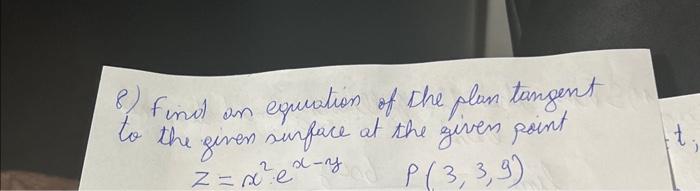 8) Find an equation of the plan tangent
to the given surface at the given point
z = x² e^{x-y} P(3, 3, 9)
t,